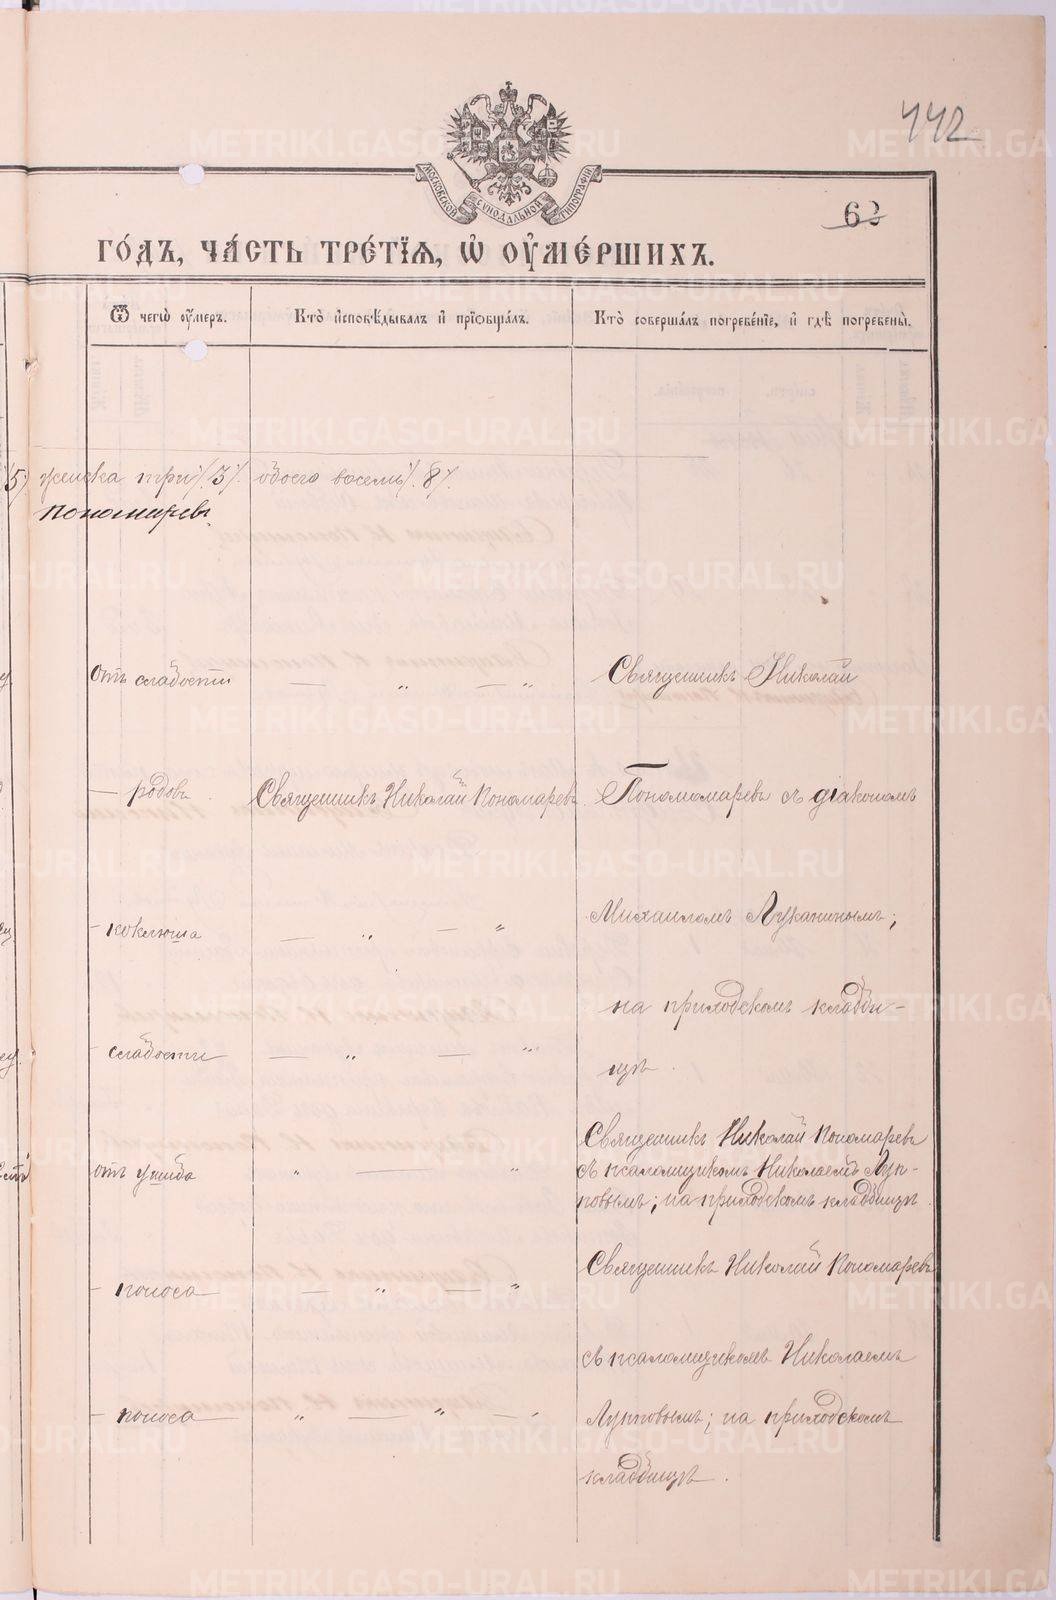 442
МОСКОВСКОЙ СѴНОДАЛЬНОЙ ТИПОГРАФІИ
62
ГО́ДЪ, ЧА́СТЬ ТРЕ́ТІѦ, Ѡ҆ ОУ҆МЕ́РШИХЪ.
Ѿ чегѡ̀ оу҆́меръ.
Кто̀ и҆сповѣ́дывалъ и҆ прїѻбща́лъ.
Кто̀ соверша́лъ погребе́нїе, и҆ гдѣ̀ погребены̀.
5) женска три /3/. обоего восемь /8/.
Пономаревъ
отъ слабости — „ — „ Священникъ Николай
— родовъ Священникъ Николай Пономаревъ Пономомаревъ съ діакономъ
- коклюша — „ — „ Михаиломъ Луканинымъ;
на приходскомъ кладби-
- слабости — „ — „
щѣ.
Священникъ Николай Пономаревъ
отъ ушиба „ — „ съ псаломщикомъ Николаемъ Луп-
повымъ; на приходскомъ кладбищѣ.
Священникъ Николай Пономаревъ
- поноса — „ — „
съ псаломщикомъ Николаемъ
- поноса „ — „ — „ Лупповымъ; на приходскомъ
кладбищѣ.
METRIKI.GASO-URAL.RU